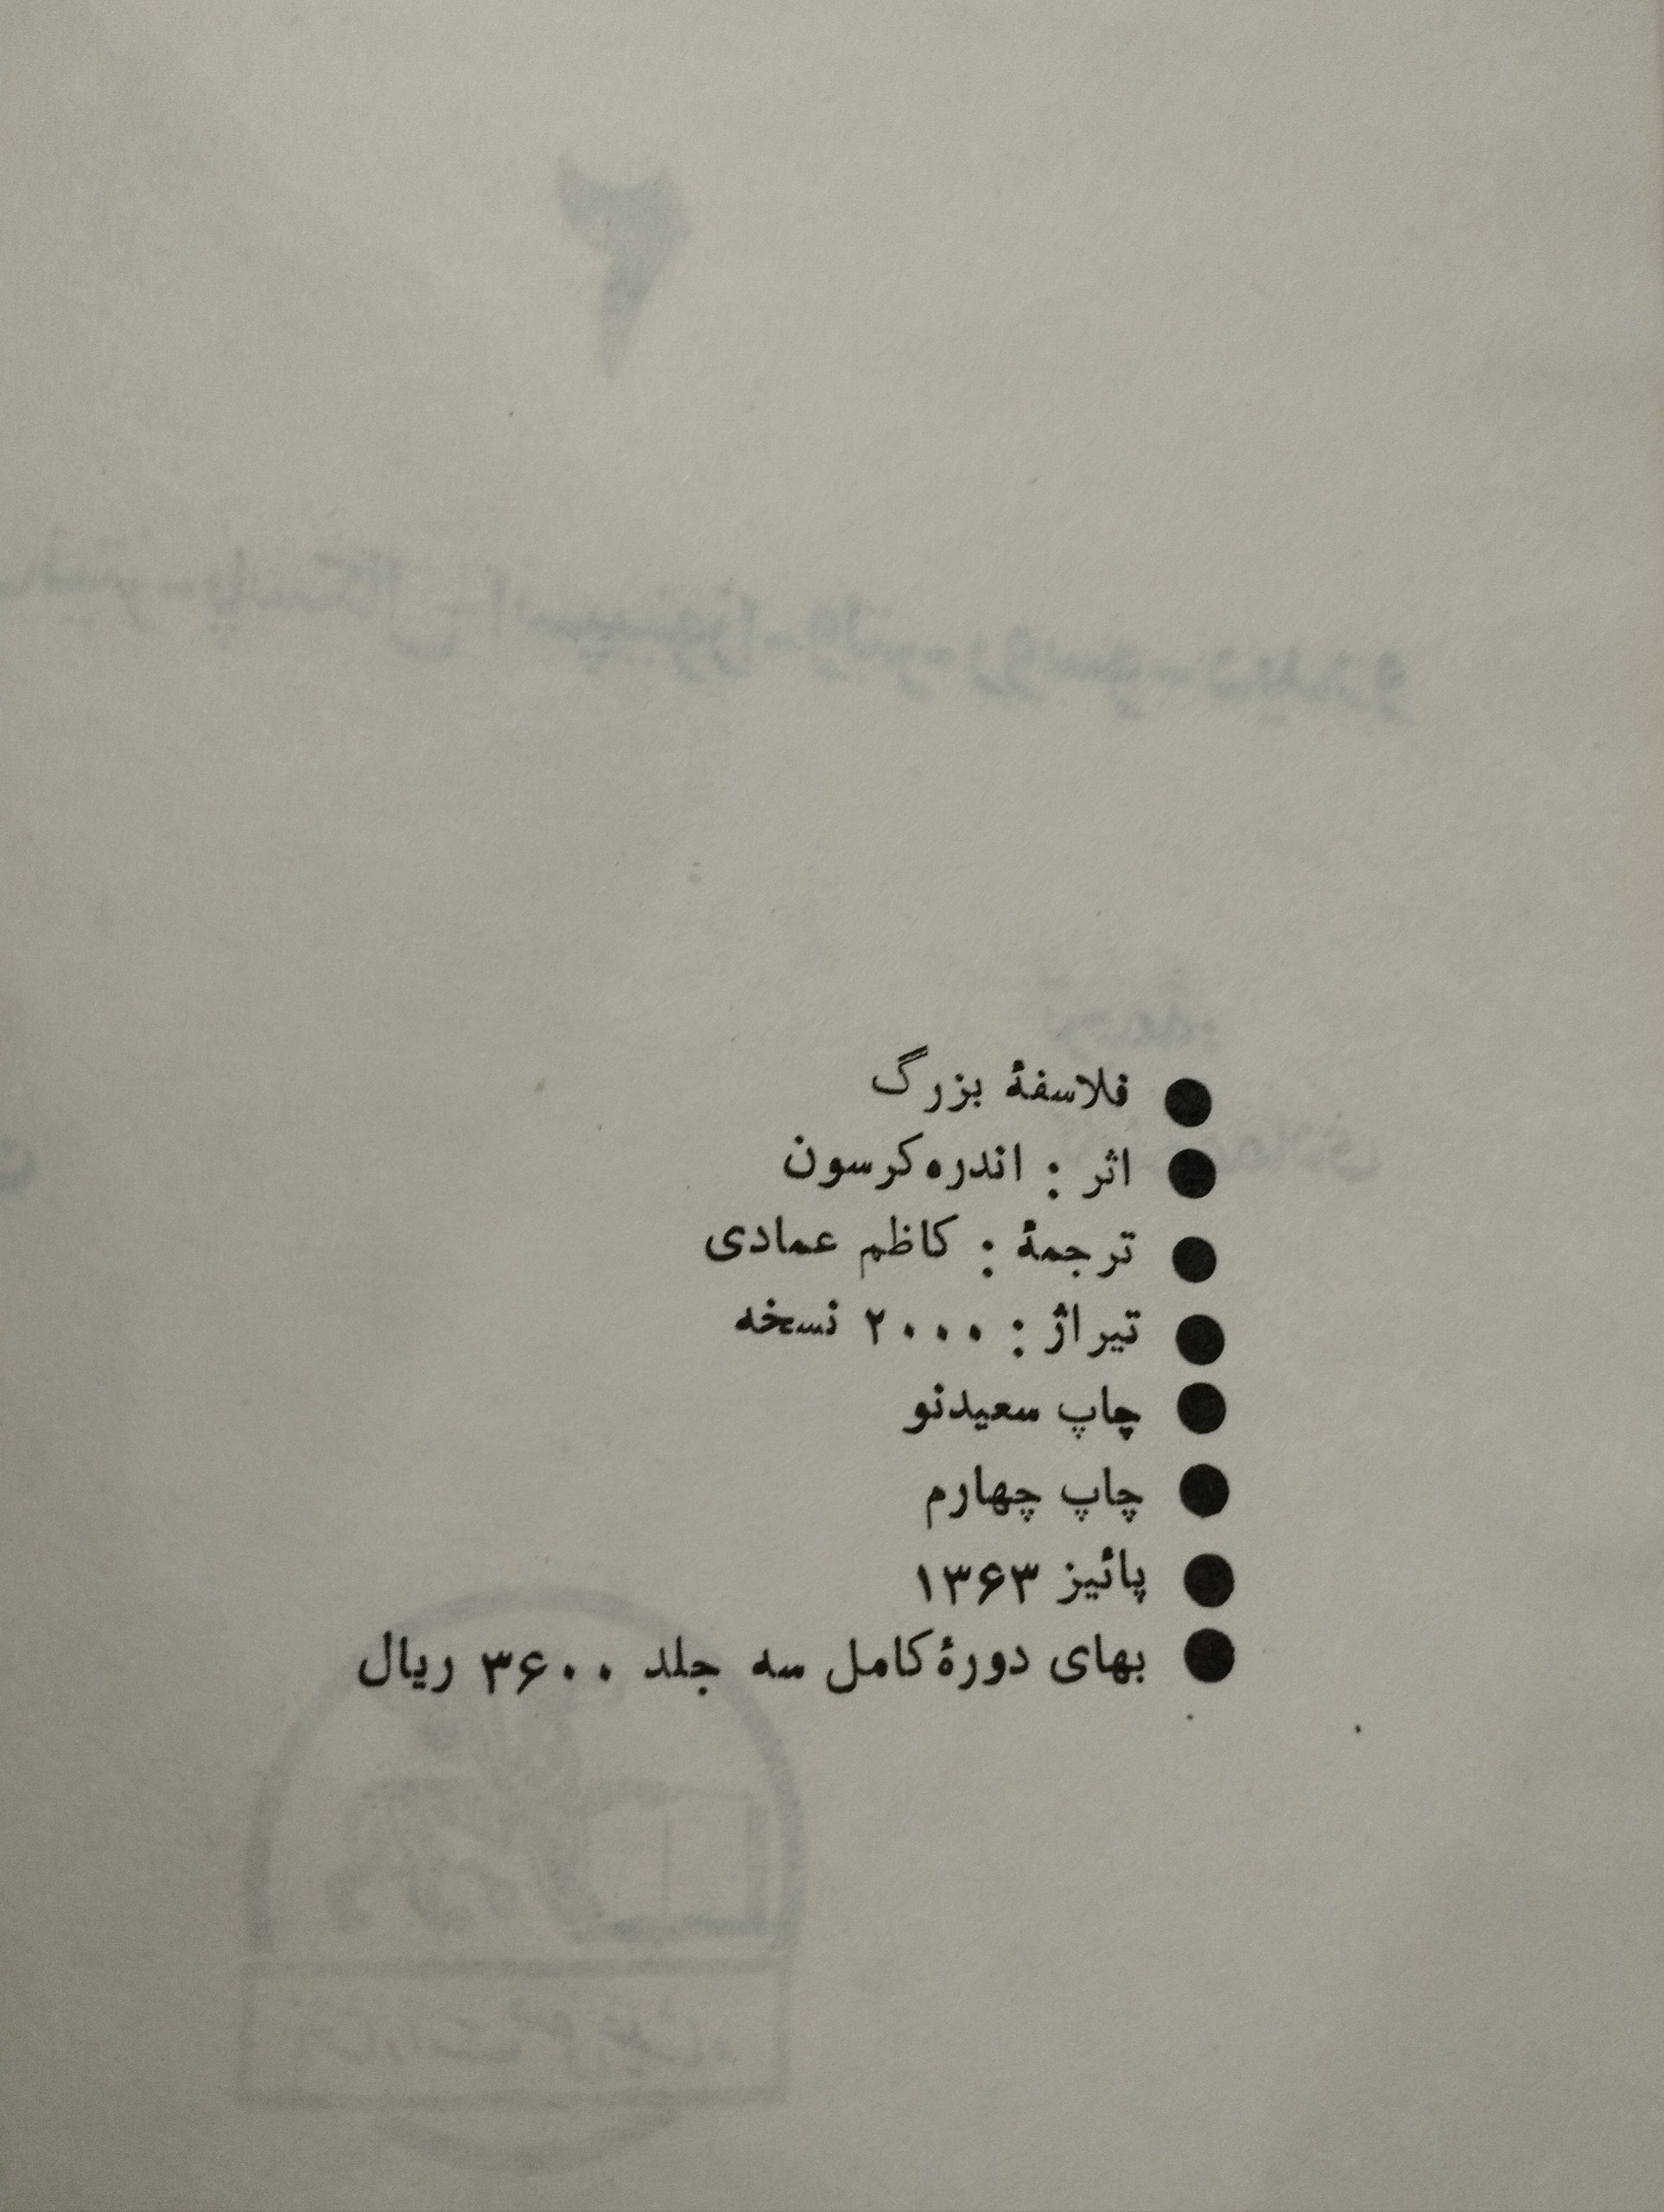 ● فلاسفهٔ بزرگ
● اثر : اندره کرسون
● ترجمهٔ : کاظم عمادی
● تیراژ : ۲۰۰۰ نسخه
● چاپ سعیدنو
● چاپ چهارم
● پائیز ۱۳۶۳
● بهای دورهٔ کامل سه جلد ۳۶۰۰ ریال